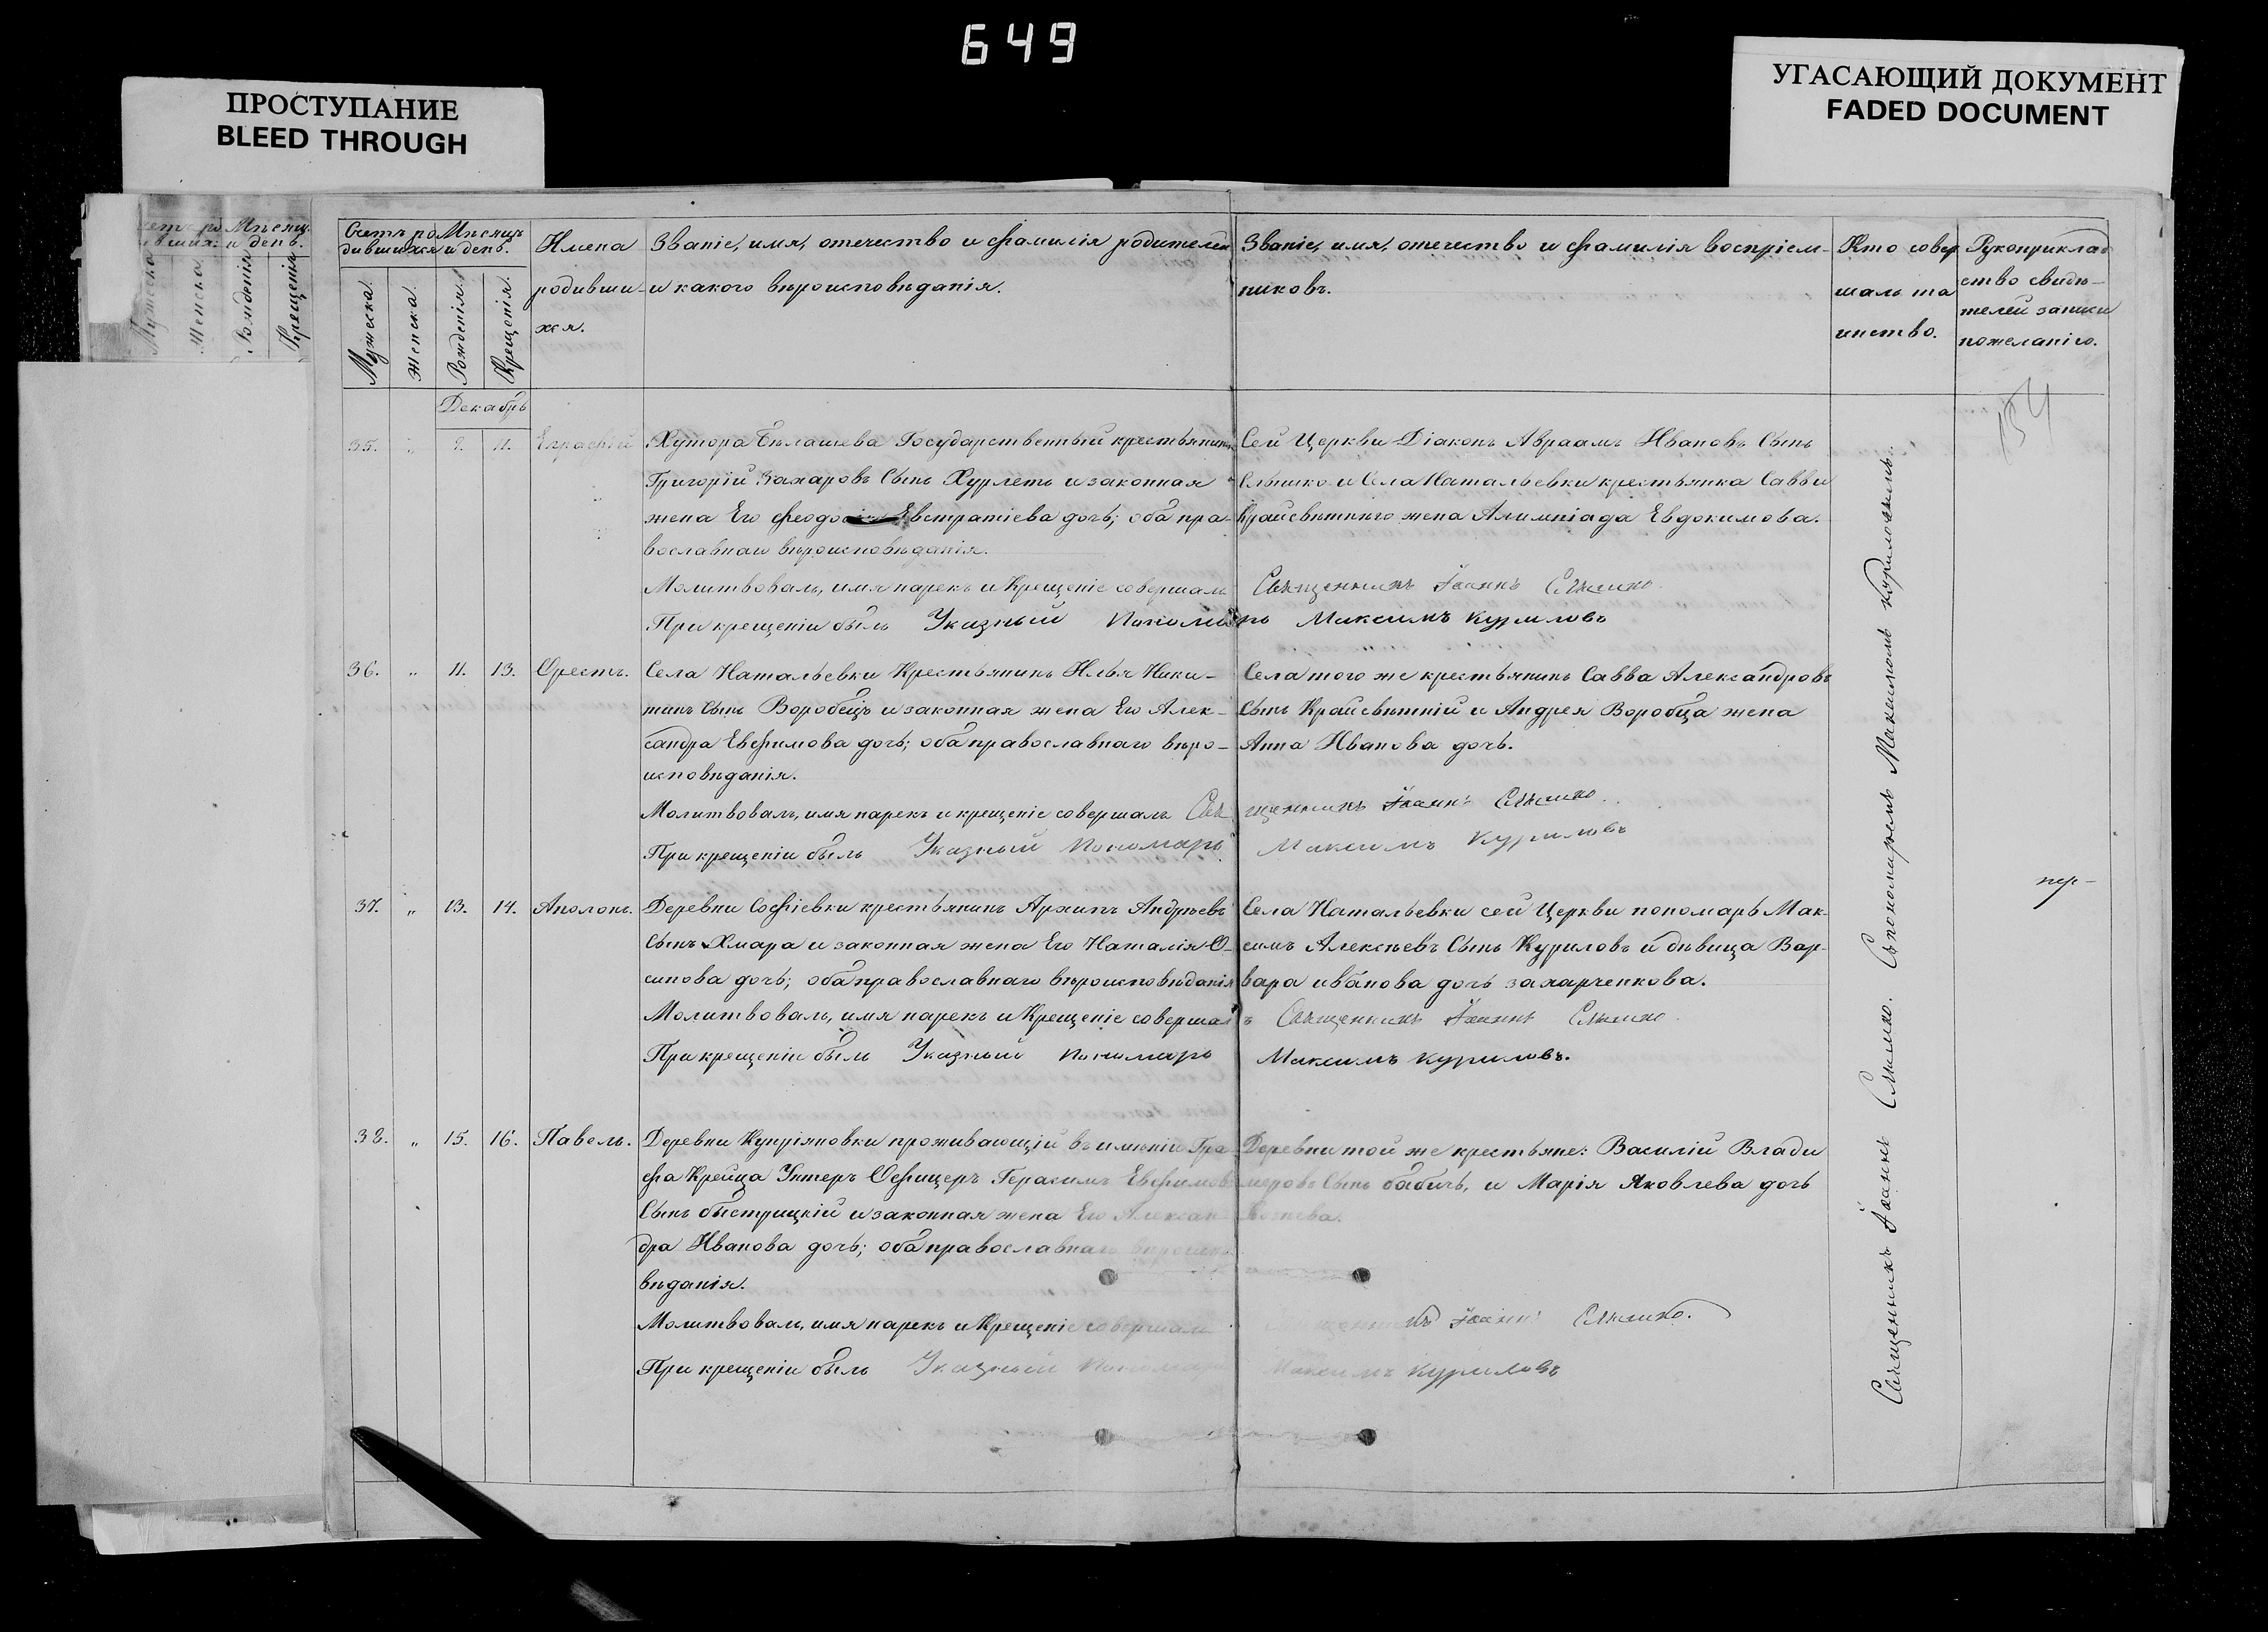 649
ПРОСТУПАНИЕ
BLEED THROUGH
УГАСАЮЩИЙ ДОКУМЕНТ
FADED DOCUMENT
Счетъ ро
дившихся
Мужеска.
Женска.
Мѣсяцъ
и день.
Рожденія.
Крещенія.
Имена
родивши-
хся.
Званіе, имя, отечество и фамилія родителей
и какого вѣроисповѣданія.
Званіе, имя, отечество и фамилія воспріем-
никовъ.
Кто совер
шалъ та
инство.
Рукоприклад
ство свидѣ-
телей записи
по желанію.
154
Декабрь
35. „ 11.
Хутора Бѣлашева Государственный крестьянинъ
Григорій Захаровъ Сынъ Хурлетъ и законная
жена Его Евстратіева дочь; оба пра-
вославнаго вѣроисповѣданія.
Сей Церкви Діаконъ Авраамъ Ивановъ Сынъ
и Села Натальевки крестьянка Саввы
Крайсвѣтняго жена Алимпіада Евдокимова.
Молитвовалъ, имя нарекъ и Крещеніе совершалъ Священникъ Іоаннъ
При крещеніи былъ Указный Пономарь Максимъ Куриловъ
36. „ 11. 13. Орестъ.
Села Натальевки Крестьянинъ Илья Ники-
тинъ Сынъ Воробецъ и законная жена Его Алек-
сандра Евфимова дочь; оба православнаго вѣро-
исповѣданія.
Села того же крестьянинъ Савва Александровъ
Сынъ Крайсвѣтній и Андрея Воробца жена
Анна Иванова дочь.
Молитвовалъ, имя нарекъ и крещеніе совершалъ Священникъ Іоаннъ
При крещеніи былъ Указный Пономарь Максимъ Куриловъ
37. „ 13. 14. Аполонъ.
Деревни Софіевки крестьянинъ Архипъ Андрѣевъ
Сынъ Хмара и законная жена Его Наталія О-
сипова дочь; оба православнаго вѣроисповѣданія
Села Натальевки сей Церкви пономарь Мак-
симъ Алексѣевъ Сынъ Куриловъ и дѣвица Вар-
вара иванова дочь захарченкова.
Молитвовалъ, имя нарекъ и Крещеніе совершалъ Священникъ Іоаннъ
При крещеніи былъ Указный пономарь Максимъ Куриловъ.
пер-
38. „ 15. 16. Павелъ.
Деревни Купріяновки проживающій въ имѣніи Гра
фа Крейца Унтеръ Офицеръ Герасимъ Евфимовъ
Сынъ быстрицкій и законная жена Его Алексан
дра Иванова дочь; оба православнаго вѣроиспо
вѣданія.
Деревни той же крестьяне: Василій Влади
меровъ Сынъ бабичъ, и Марія Яковлева дочь
Молитвовалъ, имя нарекъ и Крещеніе совершалъ Священникъ Іоаннъ
При крещеніи былъ Указный Пономарь Максимъ Куриловъ
Священникъ Іоаннъ Съ пономаремъ Максимомъ Куриловымъ.